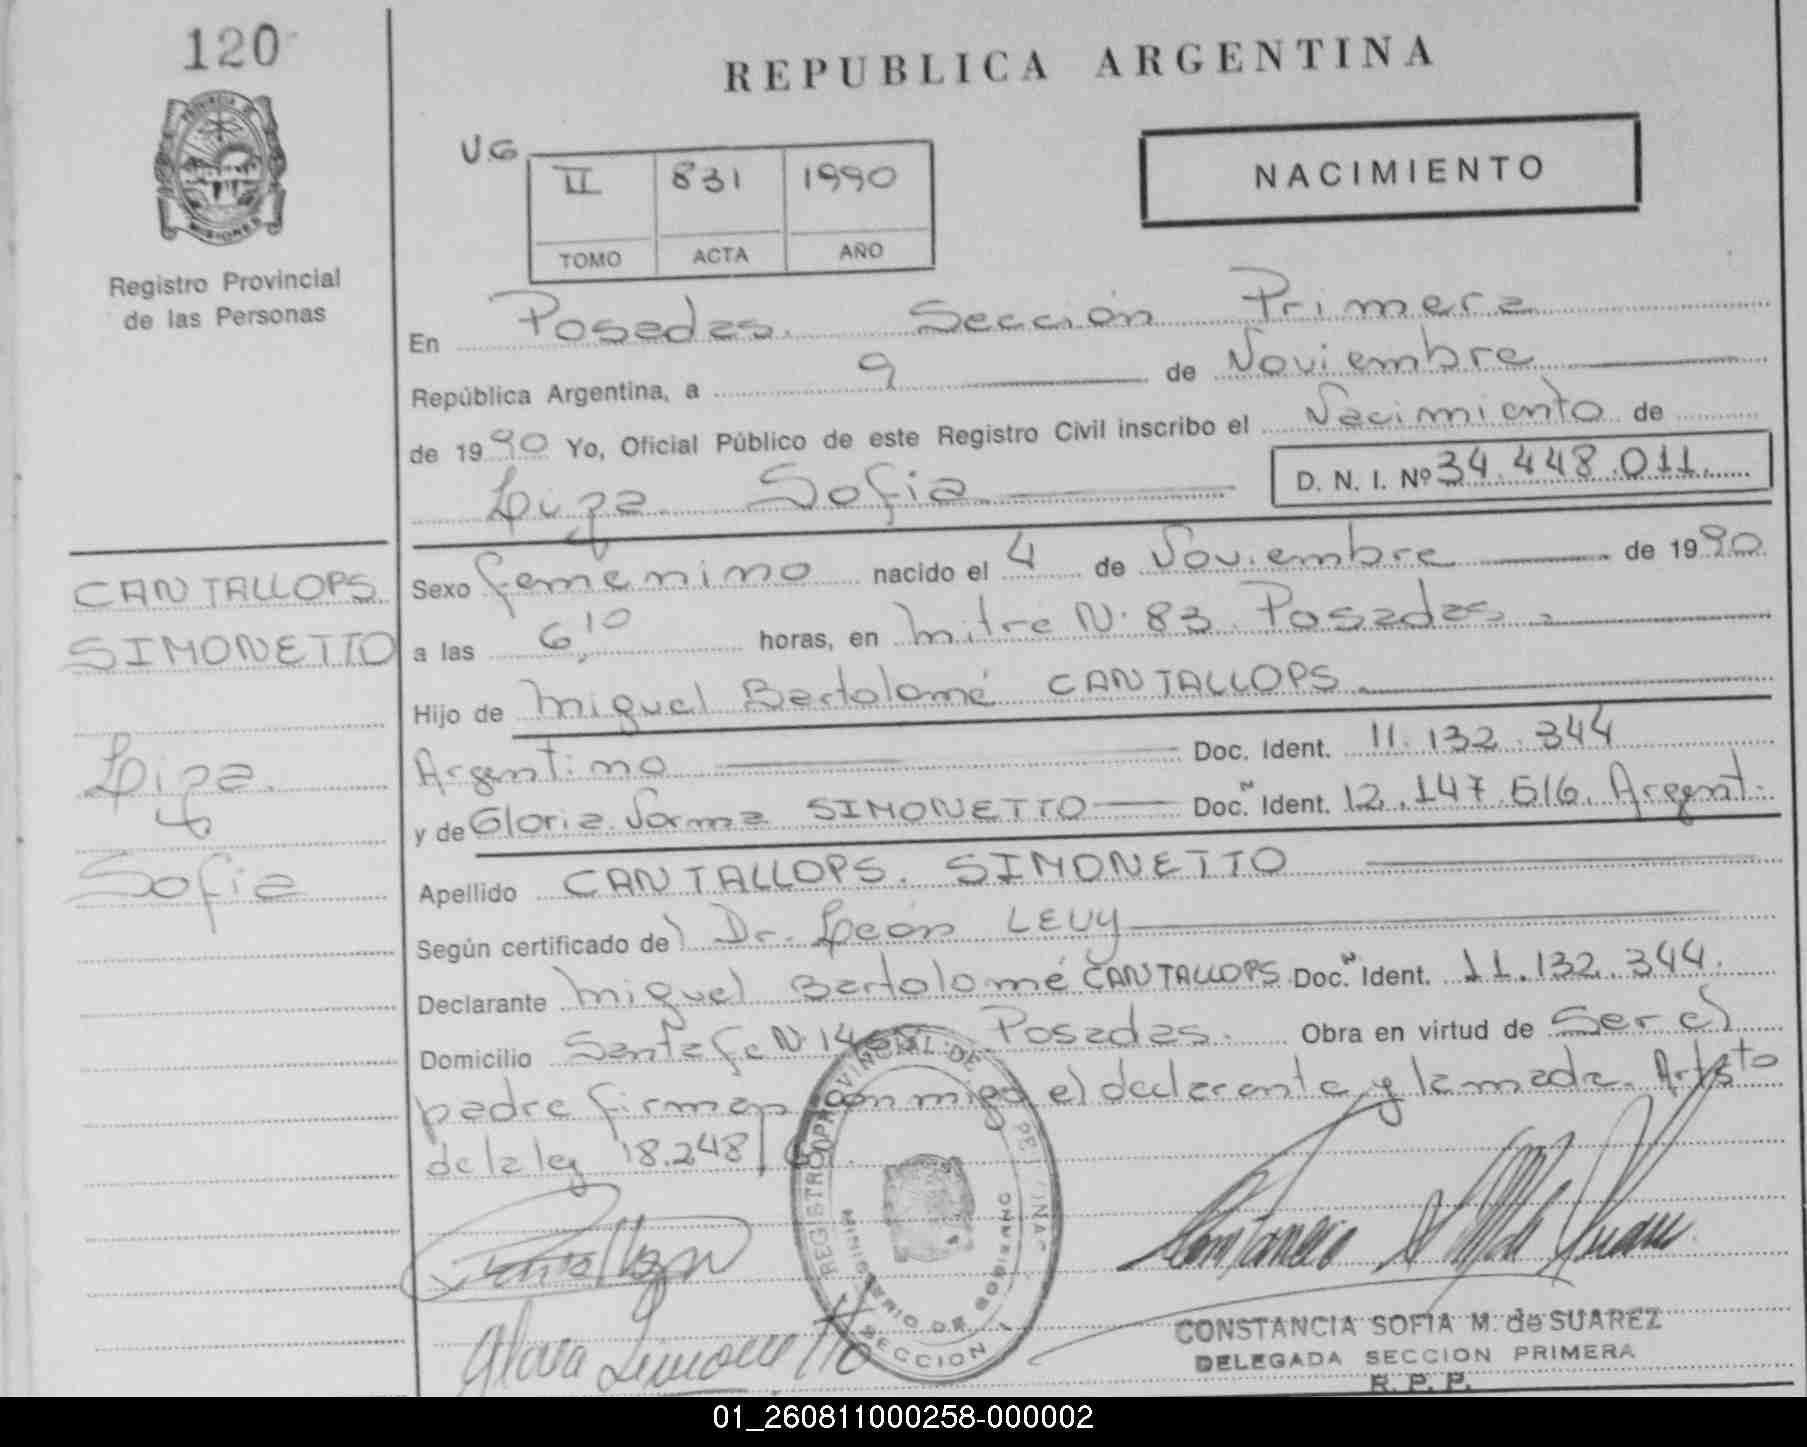 120
REPUBLICA ARGENTINA
PROVINCIA DE
MISIONES
Registro Provincial
de las Personas
U.G
II 831 1990
TOMO ACTA AÑO
NACIMIENTO
En Posadas. Sección Primera
República Argentina, a 9 de Noviembre
de 1990 Yo, Oficial Público de este Registro Civil inscribo el Nacimiento de
Liza Sofia D. N. I. Nº 34.448.011
CANTALLOPS
SIMONETTO
Liza
Sofia
Sexo femenino nacido el 4 de Noviembre de 1990
a las 6,10 horas, en Mitre N. 83. Posadas.
Hijo de Miguel Bartolomé CANTALLOPS.
Argentino Doc. Ident. 11.132.344
y de Gloria Norma SIMONETTO Doc. Ident. 12.147.516. Argent.
Apellido CANTALLOPS. SIMONETTO
Según certificado del Dr. León LEVY
Declarante Miguel Bartolomé CANTALLOPS Doc. Ident. 11.132.344.
Domicilio Santa Fe N. Posadas. Obra en virtud de ser el
padre firman con migo el declarante y la madre. Art 5to
de la ley 18.248/
REGISTRO PROVINCIAL DE
MINISTERIO DE GOBIERNO
SECCION 1
CONSTANCIA SOFIA M. de SUAREZ
DELEGADA SECCION PRIMERA
R. P. P.
01_260811000258-000002